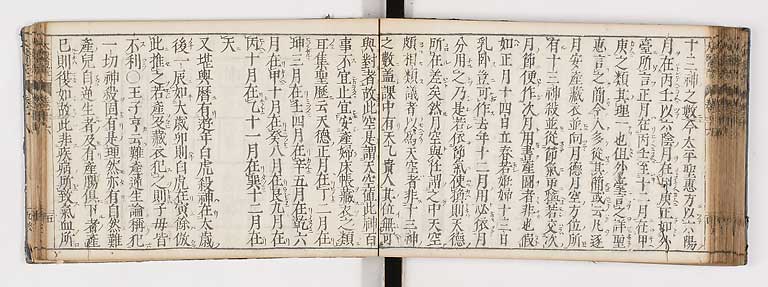 十三神之數今太平聖惠方以六陽
月在丙壬以六陰月在甲庚正如外
臺所言正月在丙壬至十二月在甲
庚之類其理一也但外臺言之詳聖
惠言之簡今人多從其簡或云凡逐
月安產藏衣並向月德月空方位所
有十三神殺並從節氣更換若交次
月節便作次月用看產圖者非也假
如正月十四日立春若婦十三日
乳卧猶可作去年十二月用必依月
分用之乃是若依節氣使換則天德
所在差矣然月空與往謂之中天空
頗相類議者以為天空者非十三神
之數蓋課中有天乙貴人其位無可
與對者故此空是謂天空値此神百
事不宜止宜安產婦床帳藏衣之類
耳集聖歷云天德正月在丁二月在
坤三月在壬四月在辛五月在乾六
月在甲七月在癸八月在艮九月在
丙十月在乙十一月在巽十二月在
天
又堪輿曆有遊年白虎殺神在太歲
後一辰如太歲在卯則白虎在寅餘倣
此推之若產及藏衣犯之則子母皆
不利○王子亨云難產論稱犯
一切神殺固有是理然亦有自然難
產兒自逆生者及有產腸俱下者產
已則復如故此非疾病所致氣血所